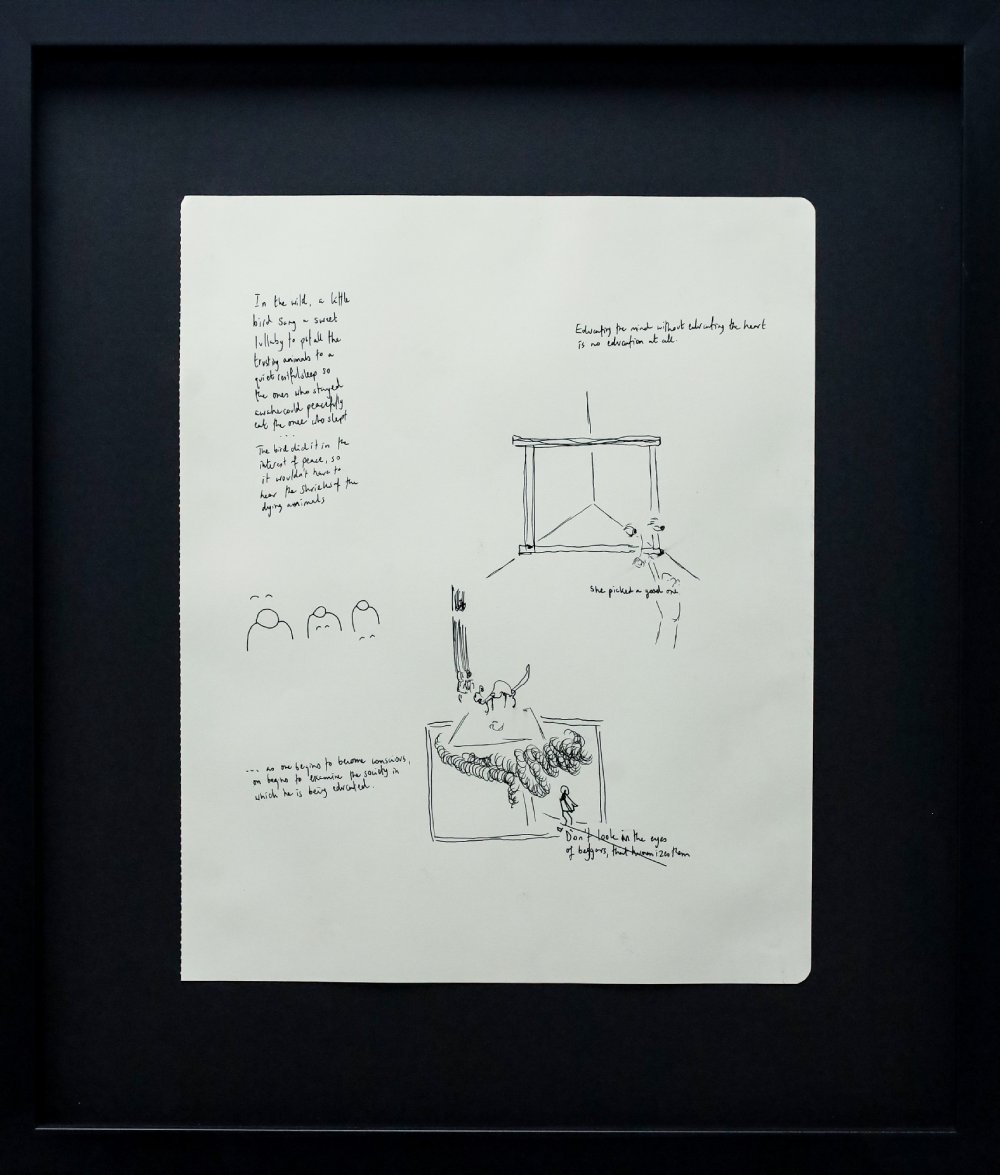 In the wild, a little
bird sang a sweet
lullaby to put all the
trusting animals to a
quiet restful sleep so
the ones who stayed
awake could peacefully
eat the ones who slept
...
The bird did it in the
interest of peace, so
it wouldn't have to
hear the shrieks of the
dying animals
Educating the mind without educating the heart
is no education at all.
She picked a good one
... as one begins to become conscious,
on begins to examine the society in
which he is being educated.
Don't look in the eyes
of beggars, that humanizes them